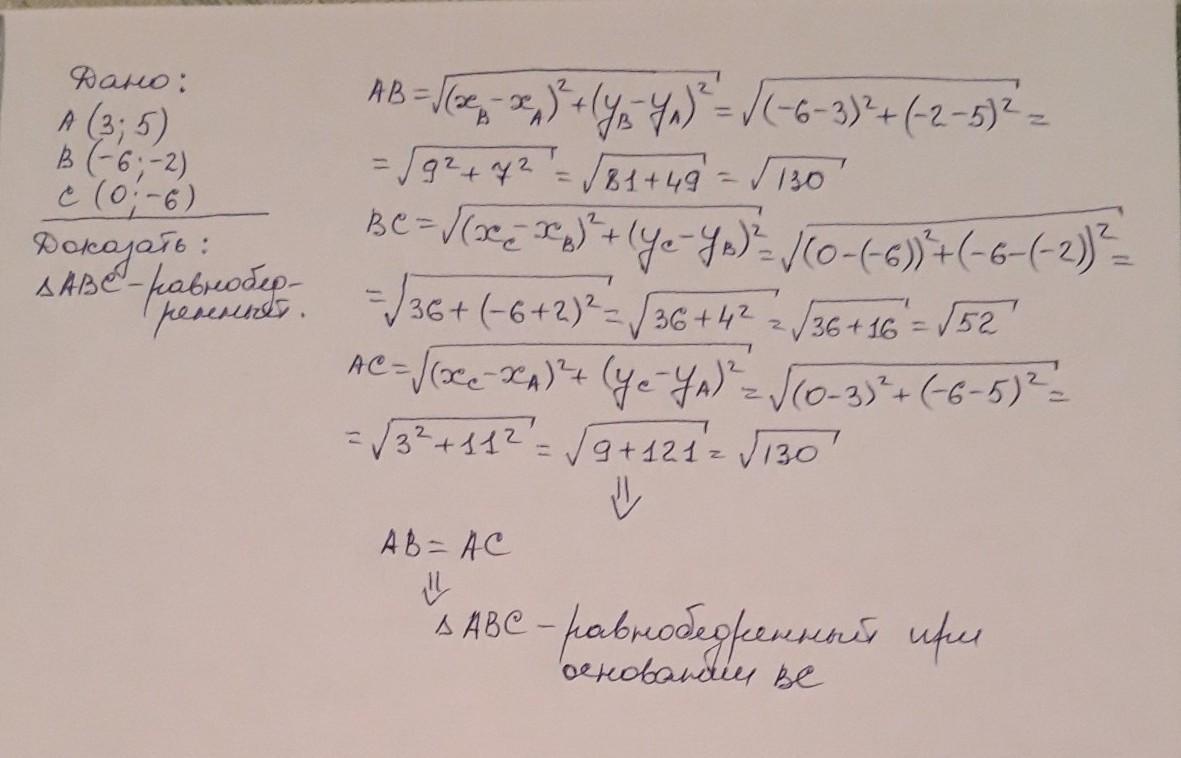 Дано:
A (3; 5)
B (-6; -2)
C (0; -6)
Доказать:
△ABC - равнобед-
ренный.
AB = √((x_B - x_A)² + (y_B - y_A)²) = √((-6-3)² + (-2-5)²) =
= √(9² + 7²) = √(81+49) = √130
BC = √((x_C - x_B)² + (y_C - y_B)²) = √((0-(-6))² + (-6-(-2))²) =
= √(36 + (-6+2)²) = √(36+4²) = √(36+16) = √52
AC = √((x_C - x_A)² + (y_C - y_A)²) = √((0-3)² + (-6-5)²) =
= √(3² + 11²) = √(9+121) = √130
⇓
AB = AC
⇓
△ABC - равнобедренный при
основании BC